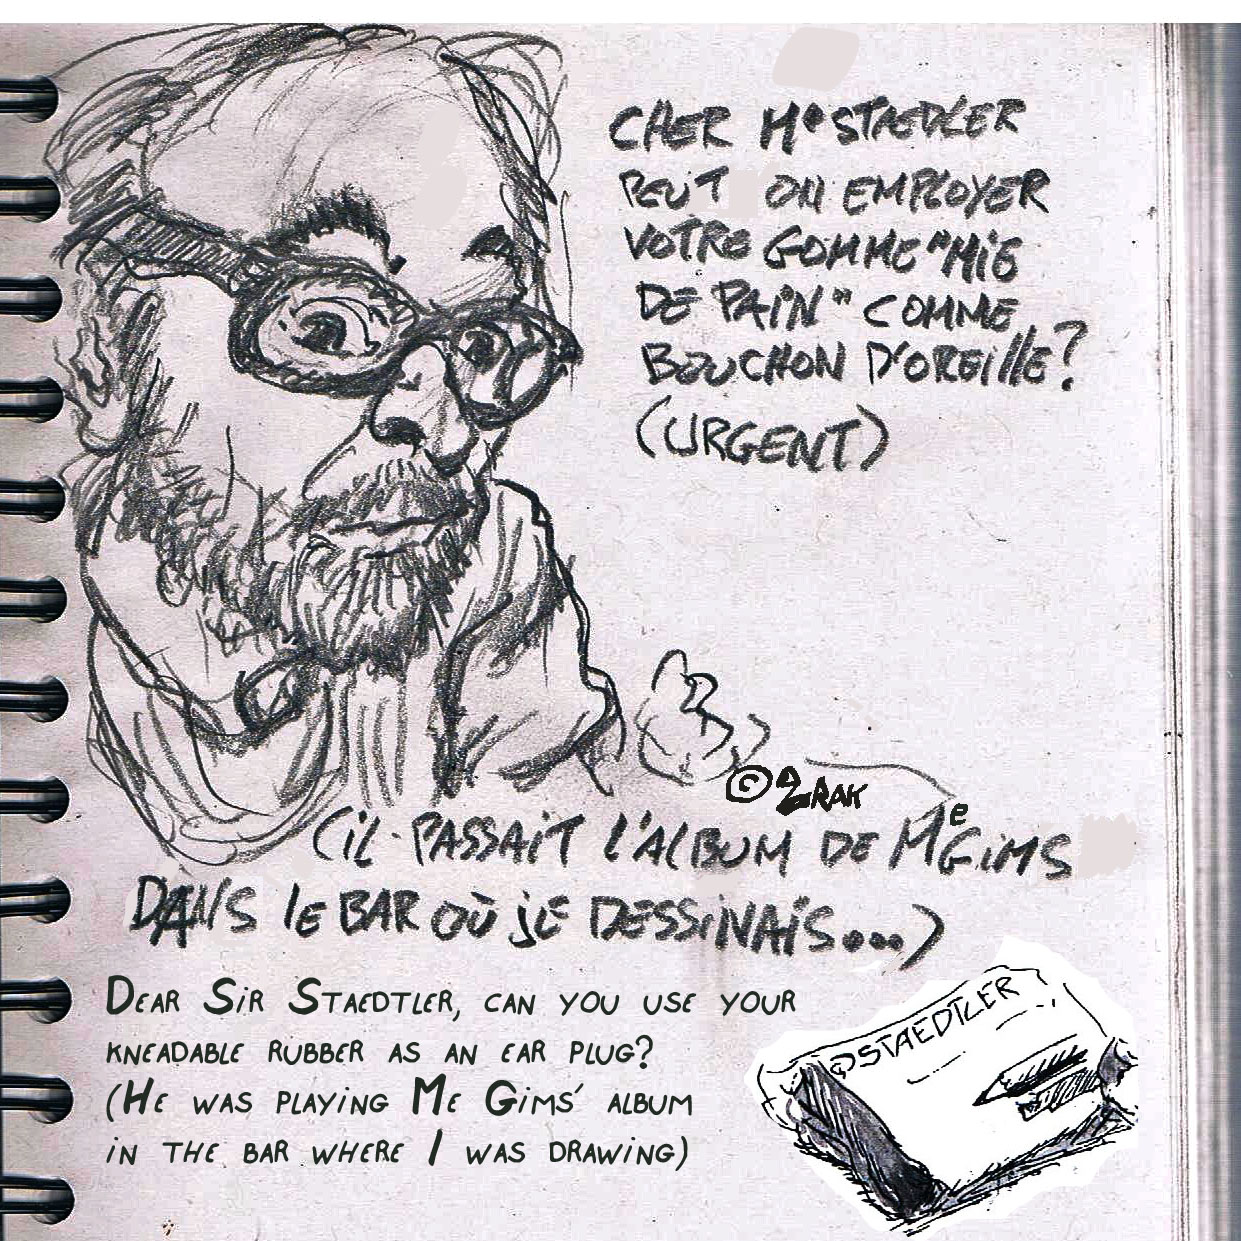 CHER Mr STAEDLER
PEUT ON EMPLOYER
VOTRE GOMME "MIE
DE PAIN" COMME
BOUCHON D'OREILLE?
(URGENT)
© 2RAK
(IL PASSAIT L'ALBUM DE Me GIMS
DANS LE BAR OÙ JE DESSINAIS...)
DEAR SIR STAEDTLER, CAN YOU USE YOUR
KNEADABLE RUBBER AS AN EAR PLUG?
(HE WAS PLAYING ME GIMS' ALBUM
IN THE BAR WHERE I WAS DRAWING)
@STAEDTLER